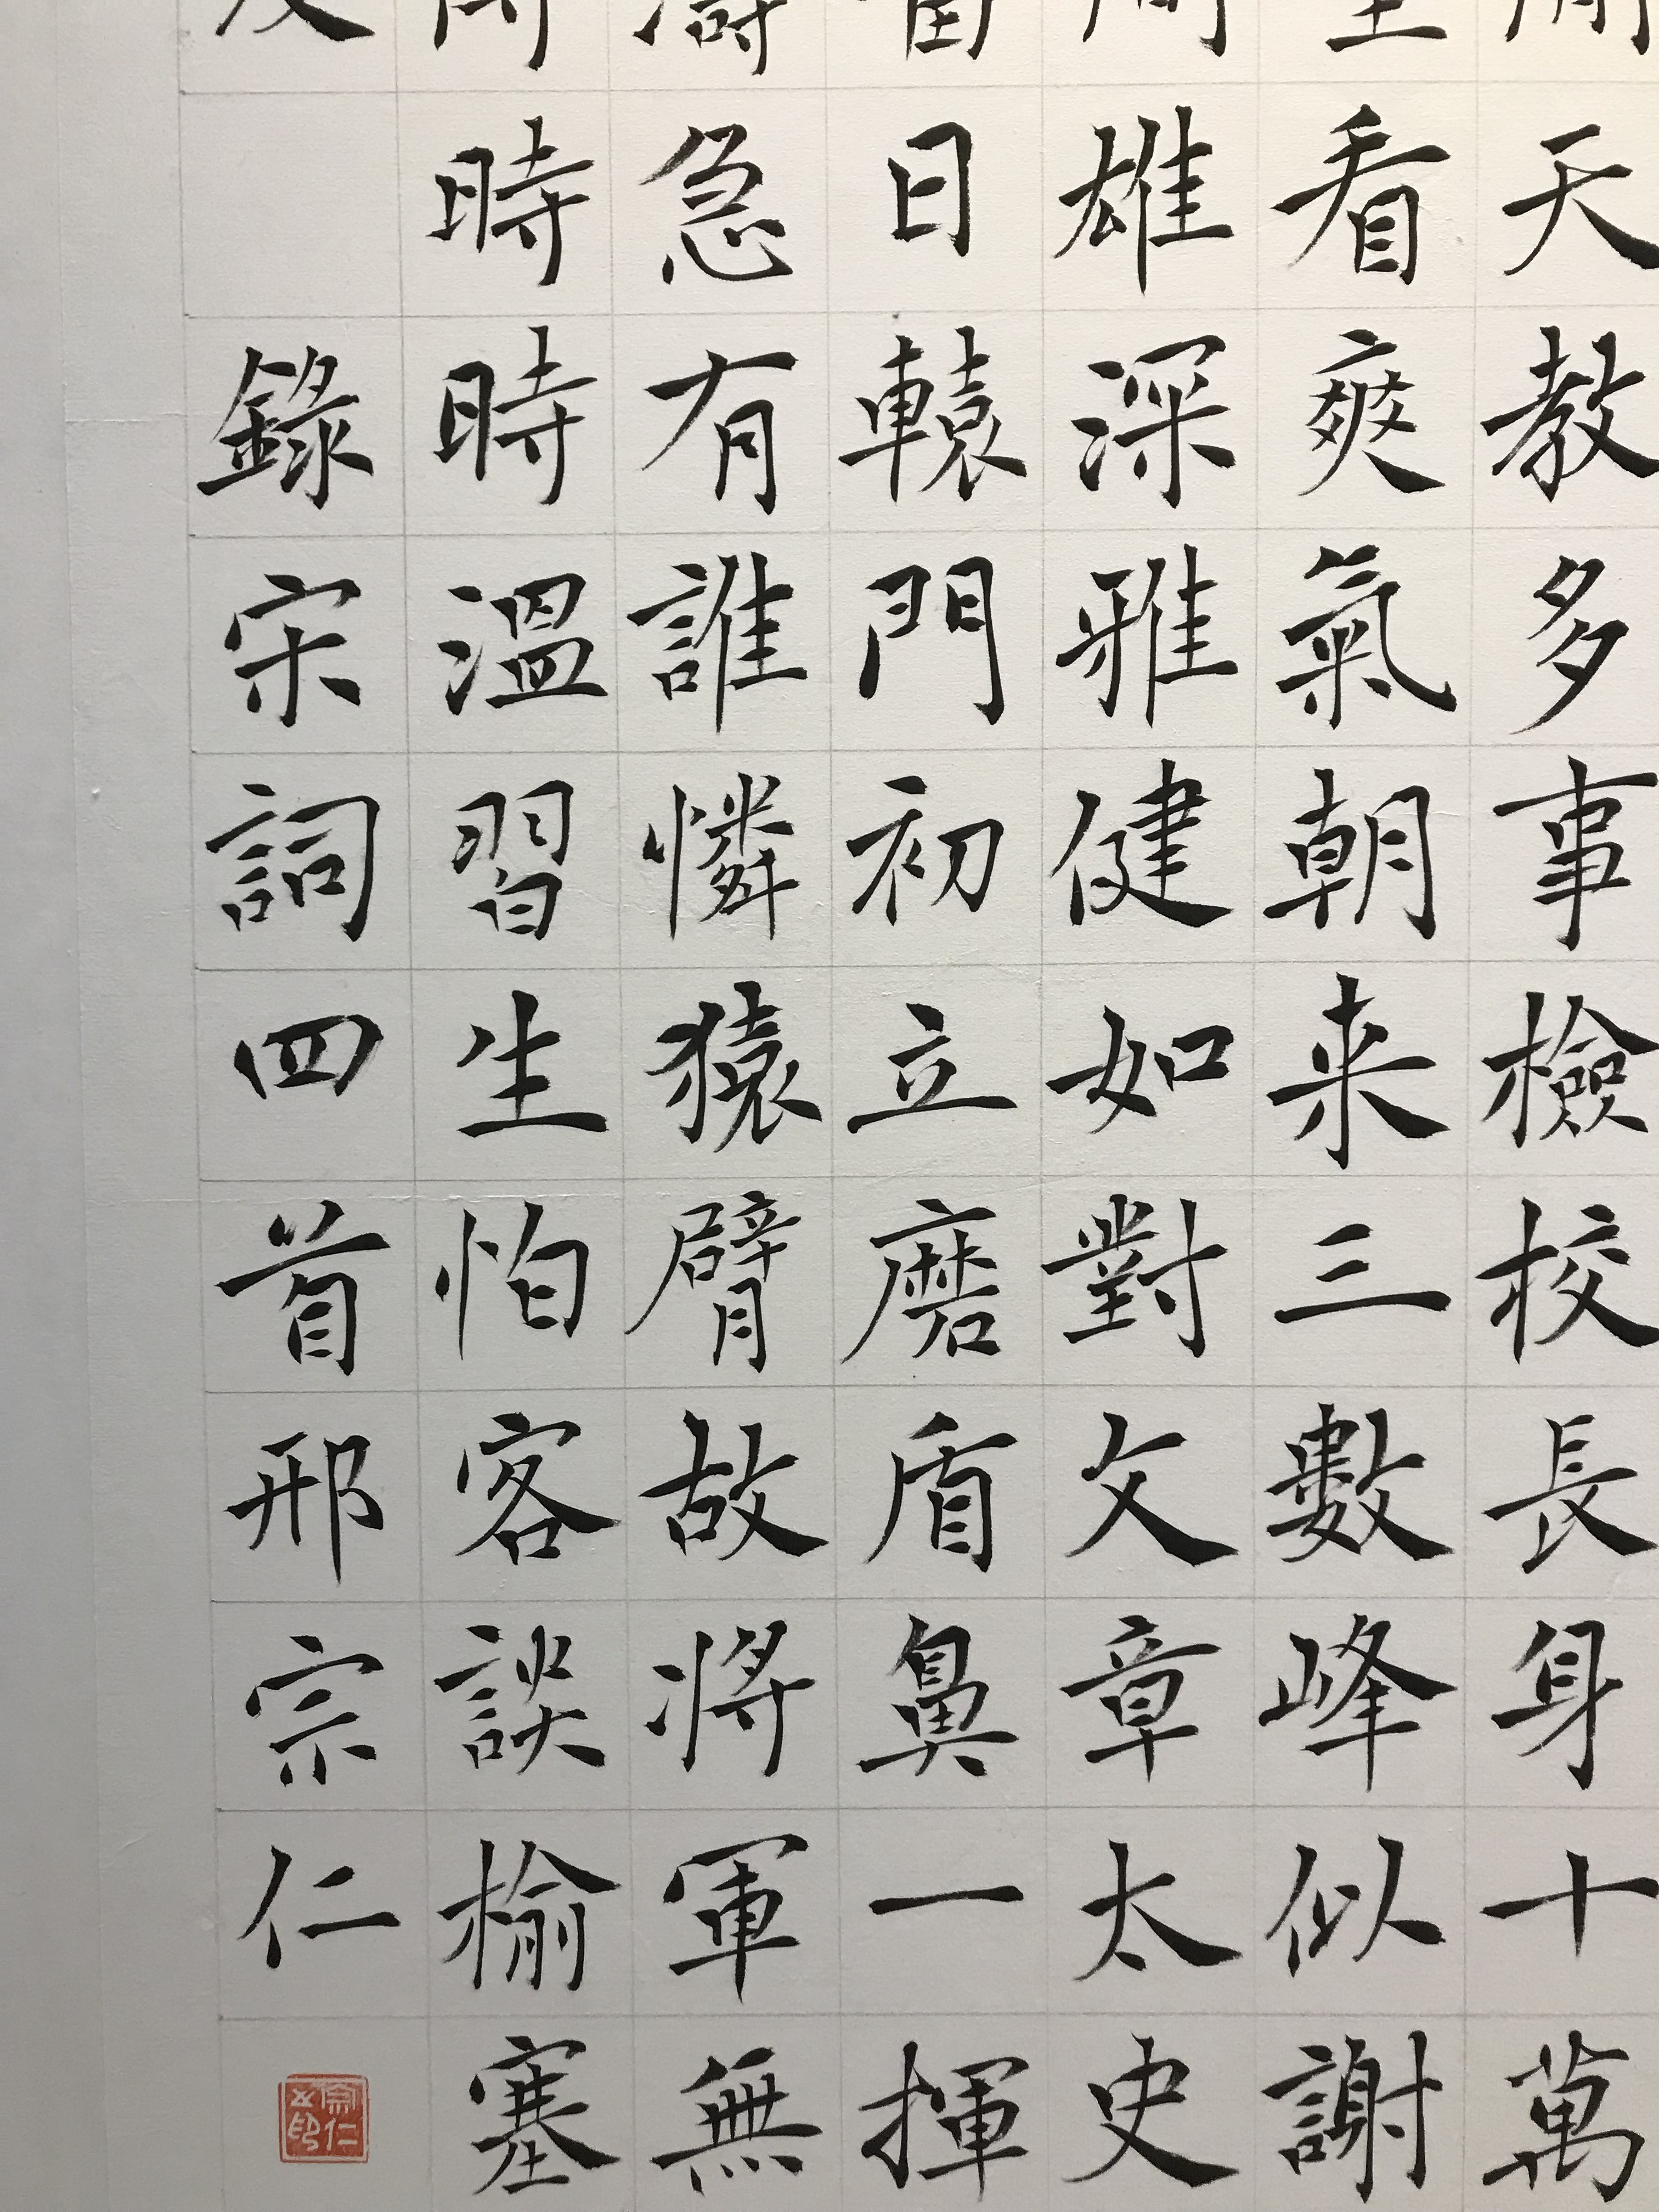 天教多事檢校長身十萬
看爽氣朝来三數峰似謝
雄深雅健如對文章太史
日轅門初立磨盾鼻一揮
急有誰憐猿臂故將軍無
時時溫習生怕客談榆塞
錄宋詞四首邢宗仁